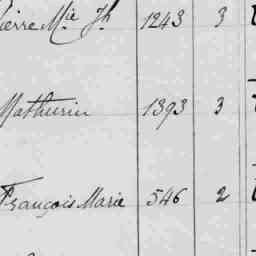 ierre Mie Jh 1243 3
Mathurin 1393 3
François Marie 546 2